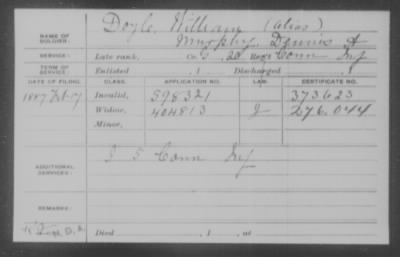 Doyle, William (alias)
NAME OF SOLDIER: Murphy, Dennis A
SERVICE: Late rank, Co. G, 20 Reg't Conn Inf
TERM OF SERVICE: Enlisted , 1 Discharged , 1
DATE OF FILING. CLASS. APPLICATION NO. LAW. CERTIFICATE NO.
1887 Feb 17 Invalid, 598321 373623
Widow, 404813 276.044
Minor,
ADDITIONAL SERVICES: I 5 Conn Inf
REMARKS:
Died , 1 , at